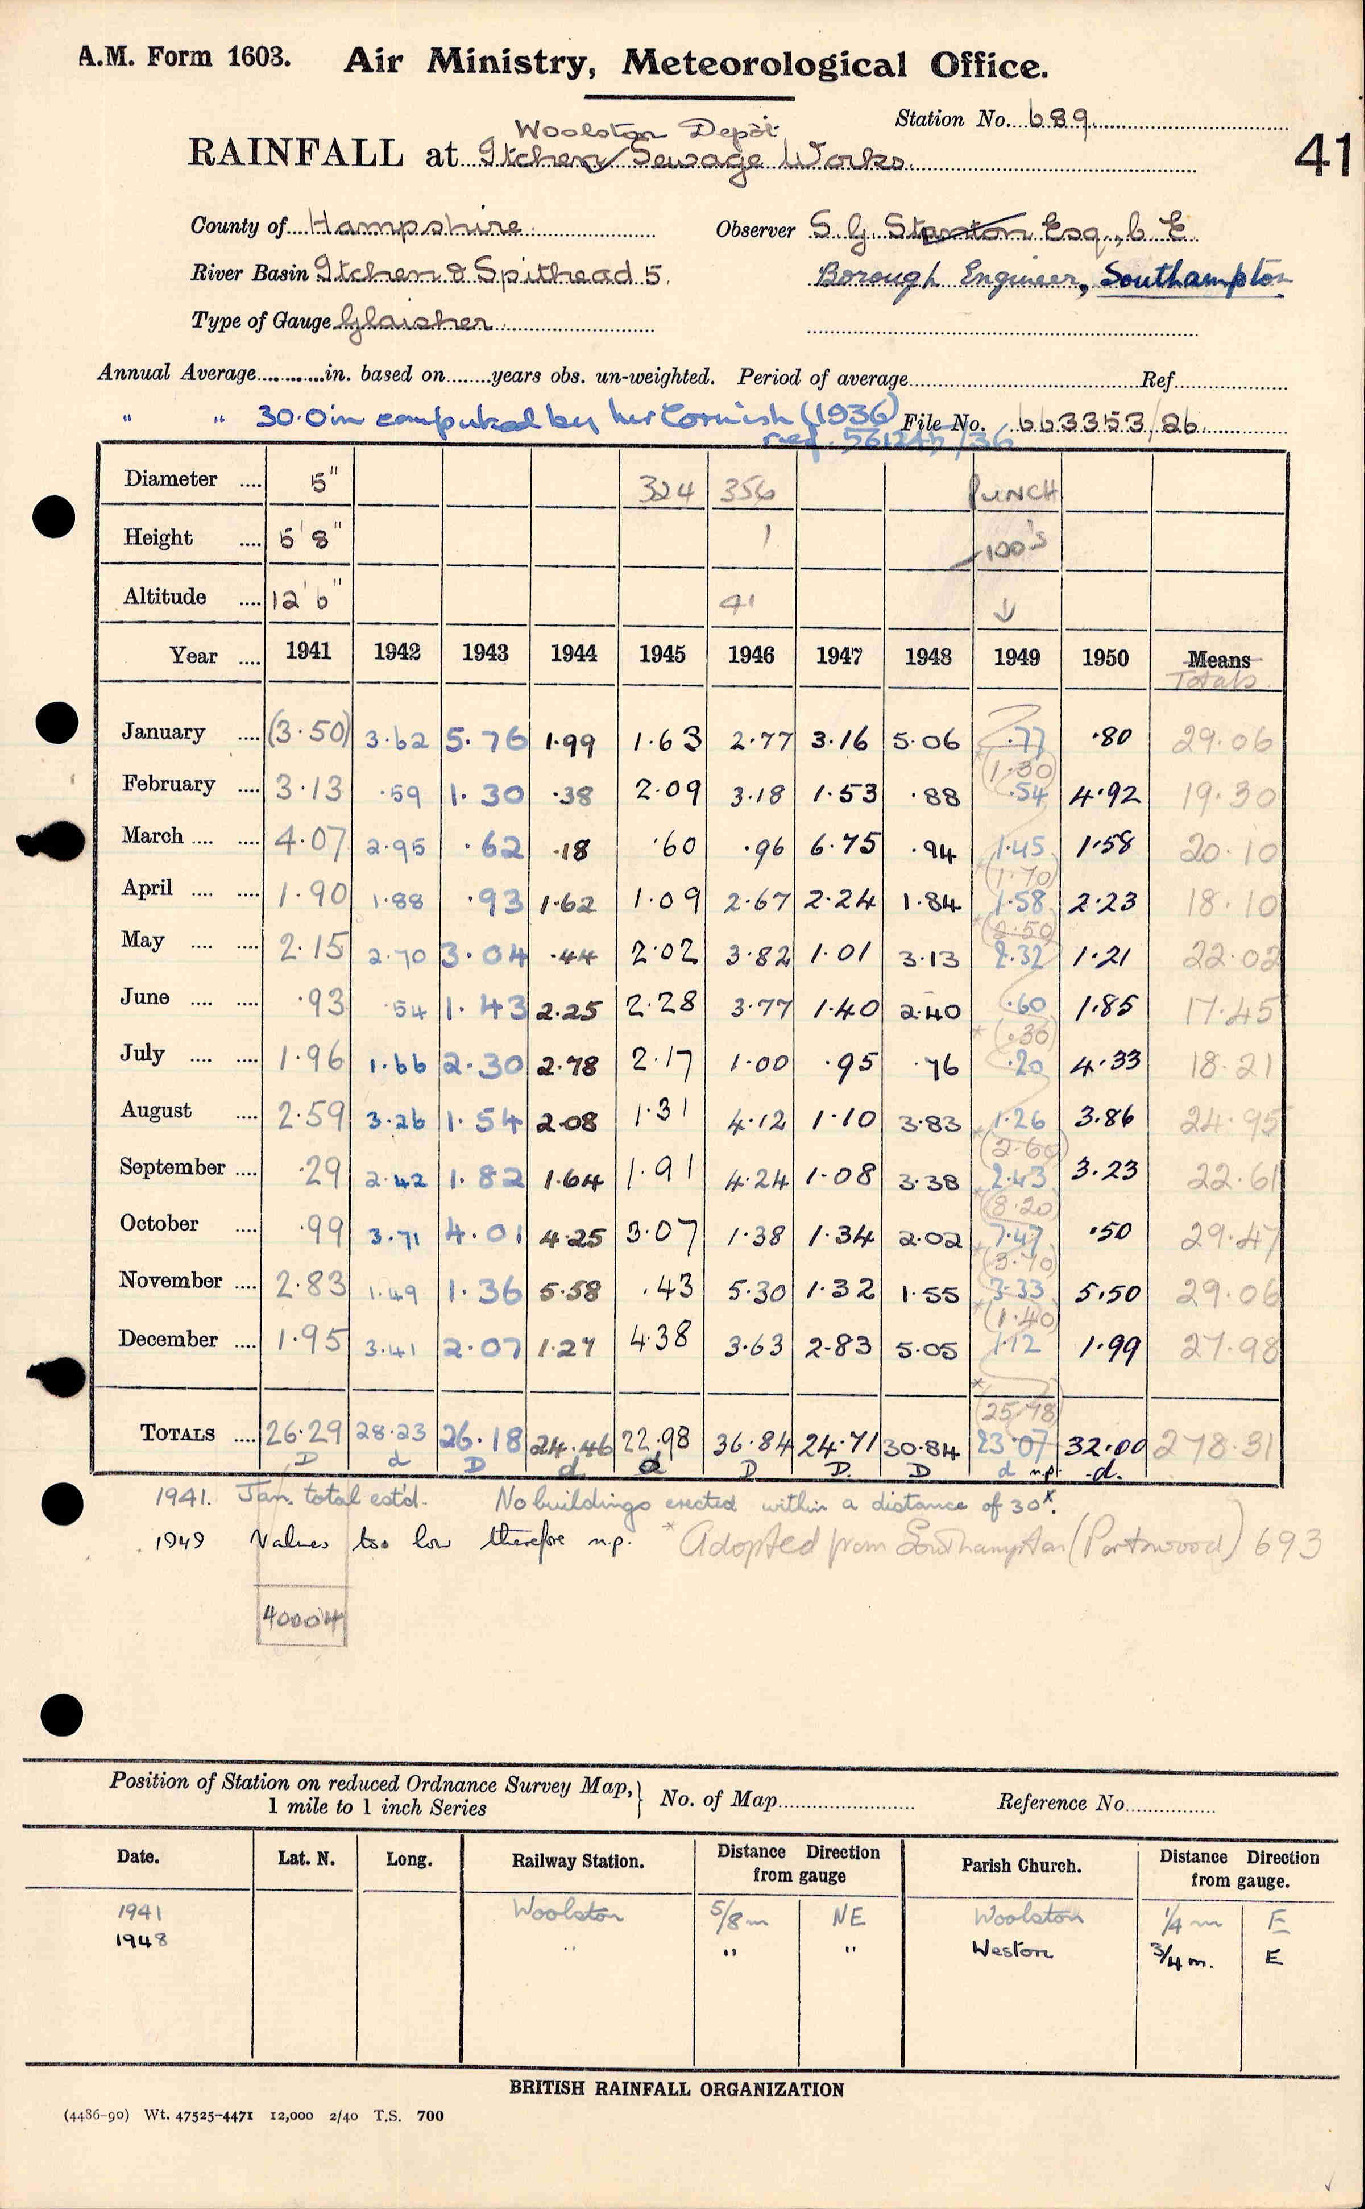 A.M. Form 1603. Air Ministry, Meteorological Office.
Station No. 689
41
Woolston Depôt
RAINFALL at Itchen Sewage Works.
County of Hampshire Observer S. G. Stanton Esq., C E
River Basin Itchen & Spithead 5. Borough Engineer, Southampton
Type of Gauge Glaisher
Annual Average............in. based on........years obs. un-weighted. Period of average Ref.
" " 30.0 in computed by Mr Cornish (1936) File No. 663353/26
ref. 561245/36
Diameter .... 5" 324 356 PUNCH
Height .... 5' 8" 1 100's
Altitude .... 12' 6" 41 ↓
Year .... 1941 1942 1943 1944 1945 1946 1947 1948 1949 1950 Means
Totals
January .... (3.50) 3.62 5.76 1.99 1.63 2.77 3.16 5.06 .77 .80 29.06
*(1.30)
February .... 3.13 .59 1.30 .38 2.09 3.18 1.53 .88 .54 4.92 19.30
March .... .... 4.07 2.95 .62 .18 .60 .96 6.75 .94 1.45 1.58 20.10
*(1.70)
April .... .... 1.90 1.88 .93 1.62 1.09 2.67 2.24 1.84 1.58 2.23 18.10
*(2.50)
May .... .... 2.15 2.70 3.04 .44 2.02 3.82 1.01 3.13 2.32 1.21 22.02
June .... .... .93 .54 1.43 2.25 2.28 3.77 1.40 2.40 .60 1.85 17.45
*(.36)
July .... .... 1.96 1.66 2.30 2.78 2.17 1.00 .95 .76 .20 4.33 18.21
August .... 2.59 3.26 1.54 2.08 1.31 4.12 1.10 3.83 1.26 3.86 24.95
*(2.60)
September .... .29 2.42 1.82 1.64 1.91 4.24 1.08 3.38 2.43 3.23 22.61
*(8.20)
October .... .99 3.71 4.01 4.25 3.07 1.38 1.34 2.02 7.47 .50 29.47
*(3.70)
November .... 2.83 1.49 1.36 5.58 .43 5.30 1.32 1.55 3.33 5.50 29.06
*(1.40)
December .... 1.95 3.41 2.07 1.27 4.38 3.63 2.83 5.05 1.12 1.99 27.98
*
(25.98)
TOTALS .... 26.29 28.23 26.18 24.46 22.98 36.84 24.71 30.84 23.07 32.00 278.31
D d D d d D D. D d n.p. d.
1941. Jan. total est'd. No buildings erected within a distance of 30x.
1949 Values too low therefore n.p. * Adopted from Southampton (Portswood) 693
40004
Position of Station on reduced Ordnance Survey Map, } No. of Map Reference No.
1 mile to 1 inch Series
Date. Lat. N. Long. Railway Station. Distance Direction from gauge Parish Church. Distance Direction from gauge.
1941 Woolston 5/8 m NE Woolston 1/4 m E
1948 " " " Weston 3/4 m. E
BRITISH RAINFALL ORGANIZATION
(4486-90) Wt. 47525-4471 12,000 2/40 T.S. 700